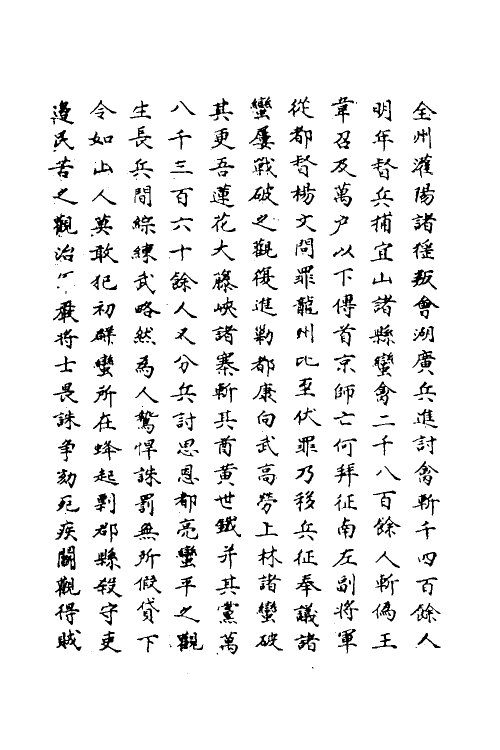 全州灌陽諸猺叛會湖廣兵進討禽斬千四百餘人
明年督兵捕宜山諸縣蠻禽二千八百餘人斬偽王
韋召及萬户以下傳首京師亡何拜征南左副將軍
從都督楊文問罪龍州比至伏罪乃移兵征奉議諸
蠻屢戰破之觀復進勦都康向武高勞上林諸蠻破
其更吾蓮花大藤峽諸寨斬其酋黃世鐵并其黨萬
八千三百六十餘人又分兵討思恩都亮蠻平之觀
生長兵間綜練武略然為人鷙悍誅罰無所假貸下
令如山人莫敢犯初群蠻所在蜂起剽郡縣殺守吏
邊民苦之觀治嚴將士畏誅争効死疾鬭觀得賊